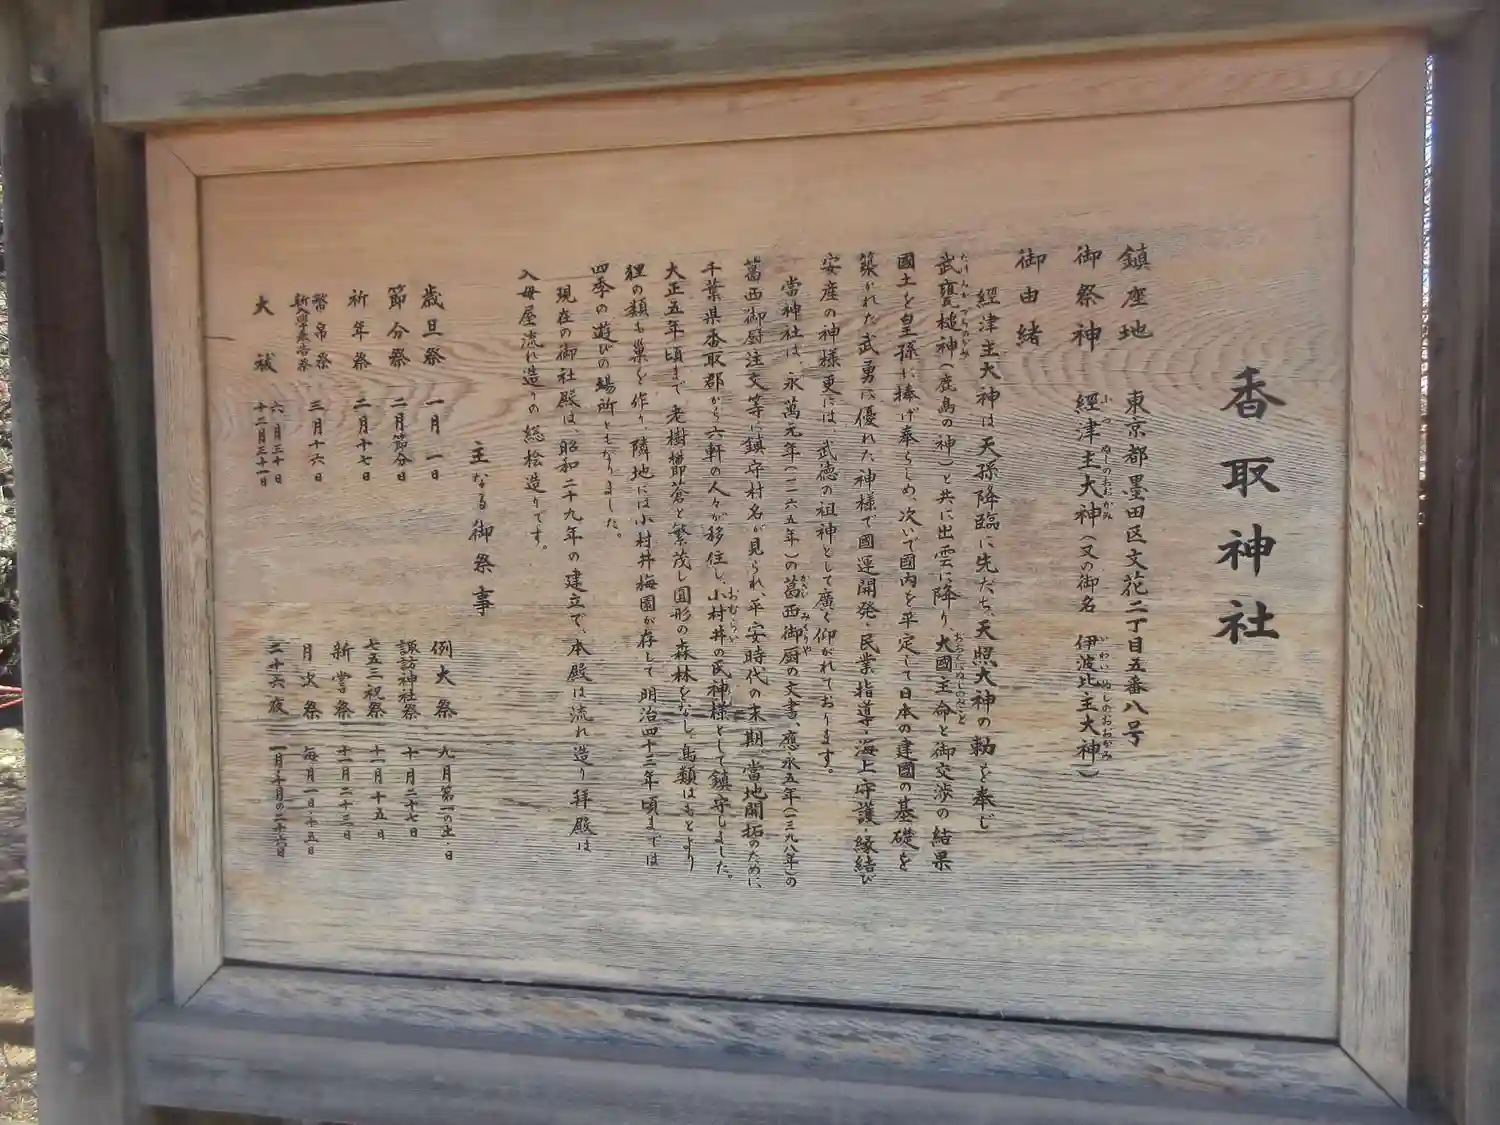 香取神社
鎮座地　東京都墨田区文花二丁目五番八号
御祭神　經津主大神（又の御名　伊波比主大神）
御由緒
經津主大神は天孫降臨に先だち、天照大神の勅を奉じ
武甕槌神（鹿島の神）と共に出雲に降り、大國主命と御交渉の結果
國土を皇孫に捧げ奉らしめ、次いで國内を平定して日本の建國の基礎を
築かれた武勇に優れた神様で國運開発・民業指導・海上守護・縁結び
安産の神様更には、武徳の祖神として廣く仰がれております。
當神社は、永萬元年（一一六五年）の葛西御厨の文書、應永五年（一三九八年）の
葛西御厨注文等に鎮守村名が見られ、平安時代の末期、當地開拓のために、
千葉県香取郡から六軒の人々が移住し、小村井の氏神様として鎮守しました。
大正五年頃まで老樹欝蒼と繁茂し圓形の森林をなし、鳥類はもとより
狸の類も巣を作り、隣地には小村井梅園が存して明治四十三年頃までは
四季の遊びの場所ともなりました。
現在の御社殿は、昭和二十九年の建立で、本殿は流れ造り拝殿は
入母屋流れ造りの総桧造りです。
主なる御祭事
歳旦祭　一月一日
節分祭　二月節分日
祈年祭　二月十七日
幣帛祭
新入学奉告祭　三月十六日
大祓　六月三十日
十二月三十一日
例大祭　九月第一の土・日
諏訪神社祭　十月二十七日
七五三祝祭　十一月十五日
新嘗祭　十一月二十三日
月次祭　毎月一日・十五日
二十六夜　一月・十月の二十六日